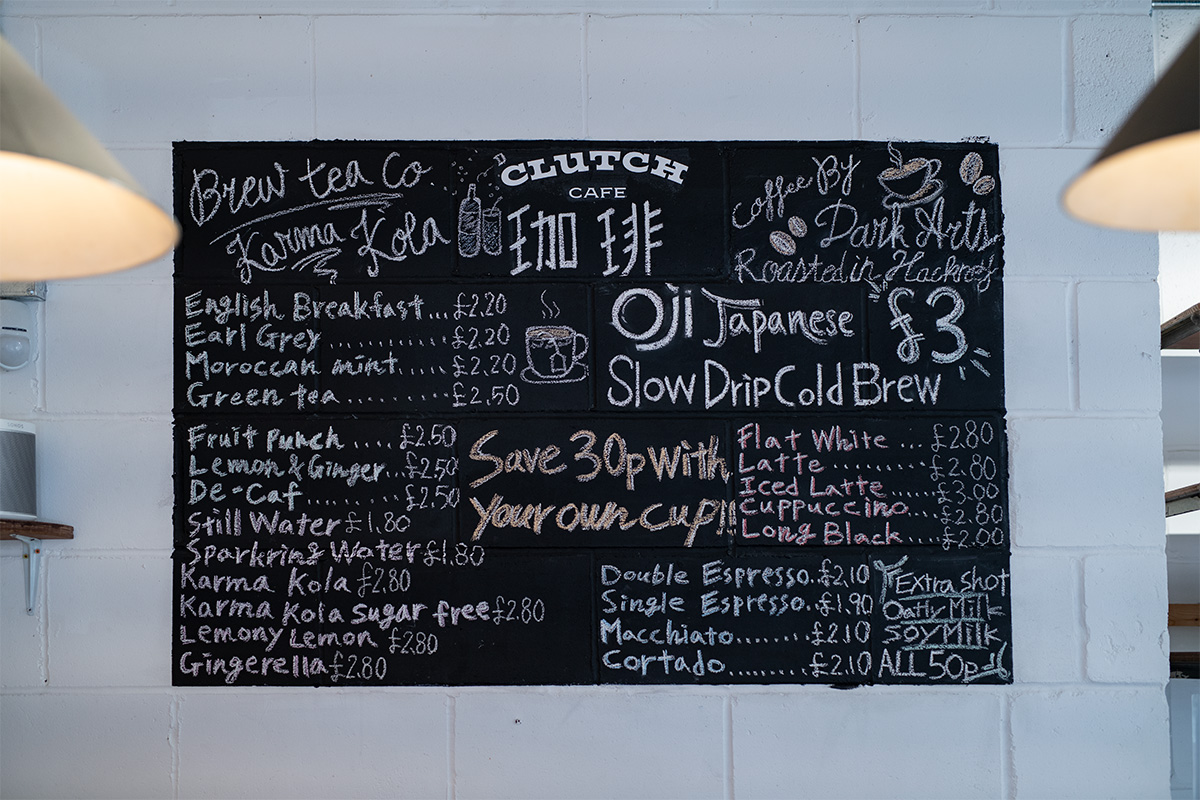 Brew tea Co.
Karma Kola
CLUTCH
CAFE
珈琲
Coffee By
Dark Arts
Roasted in Hackney
English Breakfast...£2.20
Earl Grey ............£2.20
Moroccan mint.....£2.20
Green tea..........£2.50
Oji Japanese £3
Slow Drip Cold Brew
Fruit punch ....£2.50
Lemon & Ginger...£2.50
De-Caf..........£2.50
Still Water £1.80
Sparkring Water £1.80
Karma Kola £2.80
Karma Kola sugar free £2.80
Lemony Lemon £2.80
Gingerella £2.80
Save 30p with
Your own cup!!
Flat White ...£2.80
Latte .........£2.80
Iced Latte......£3.00
Cuppuccino....£2.80
Long Black.....£2.00
Double Espresso..£2.10
Single Espresso..£1.90
Macchiato........£2.10
Cortado..........£2.10
Extra shot
Oatly Milk
Soy Milk
ALL 50p